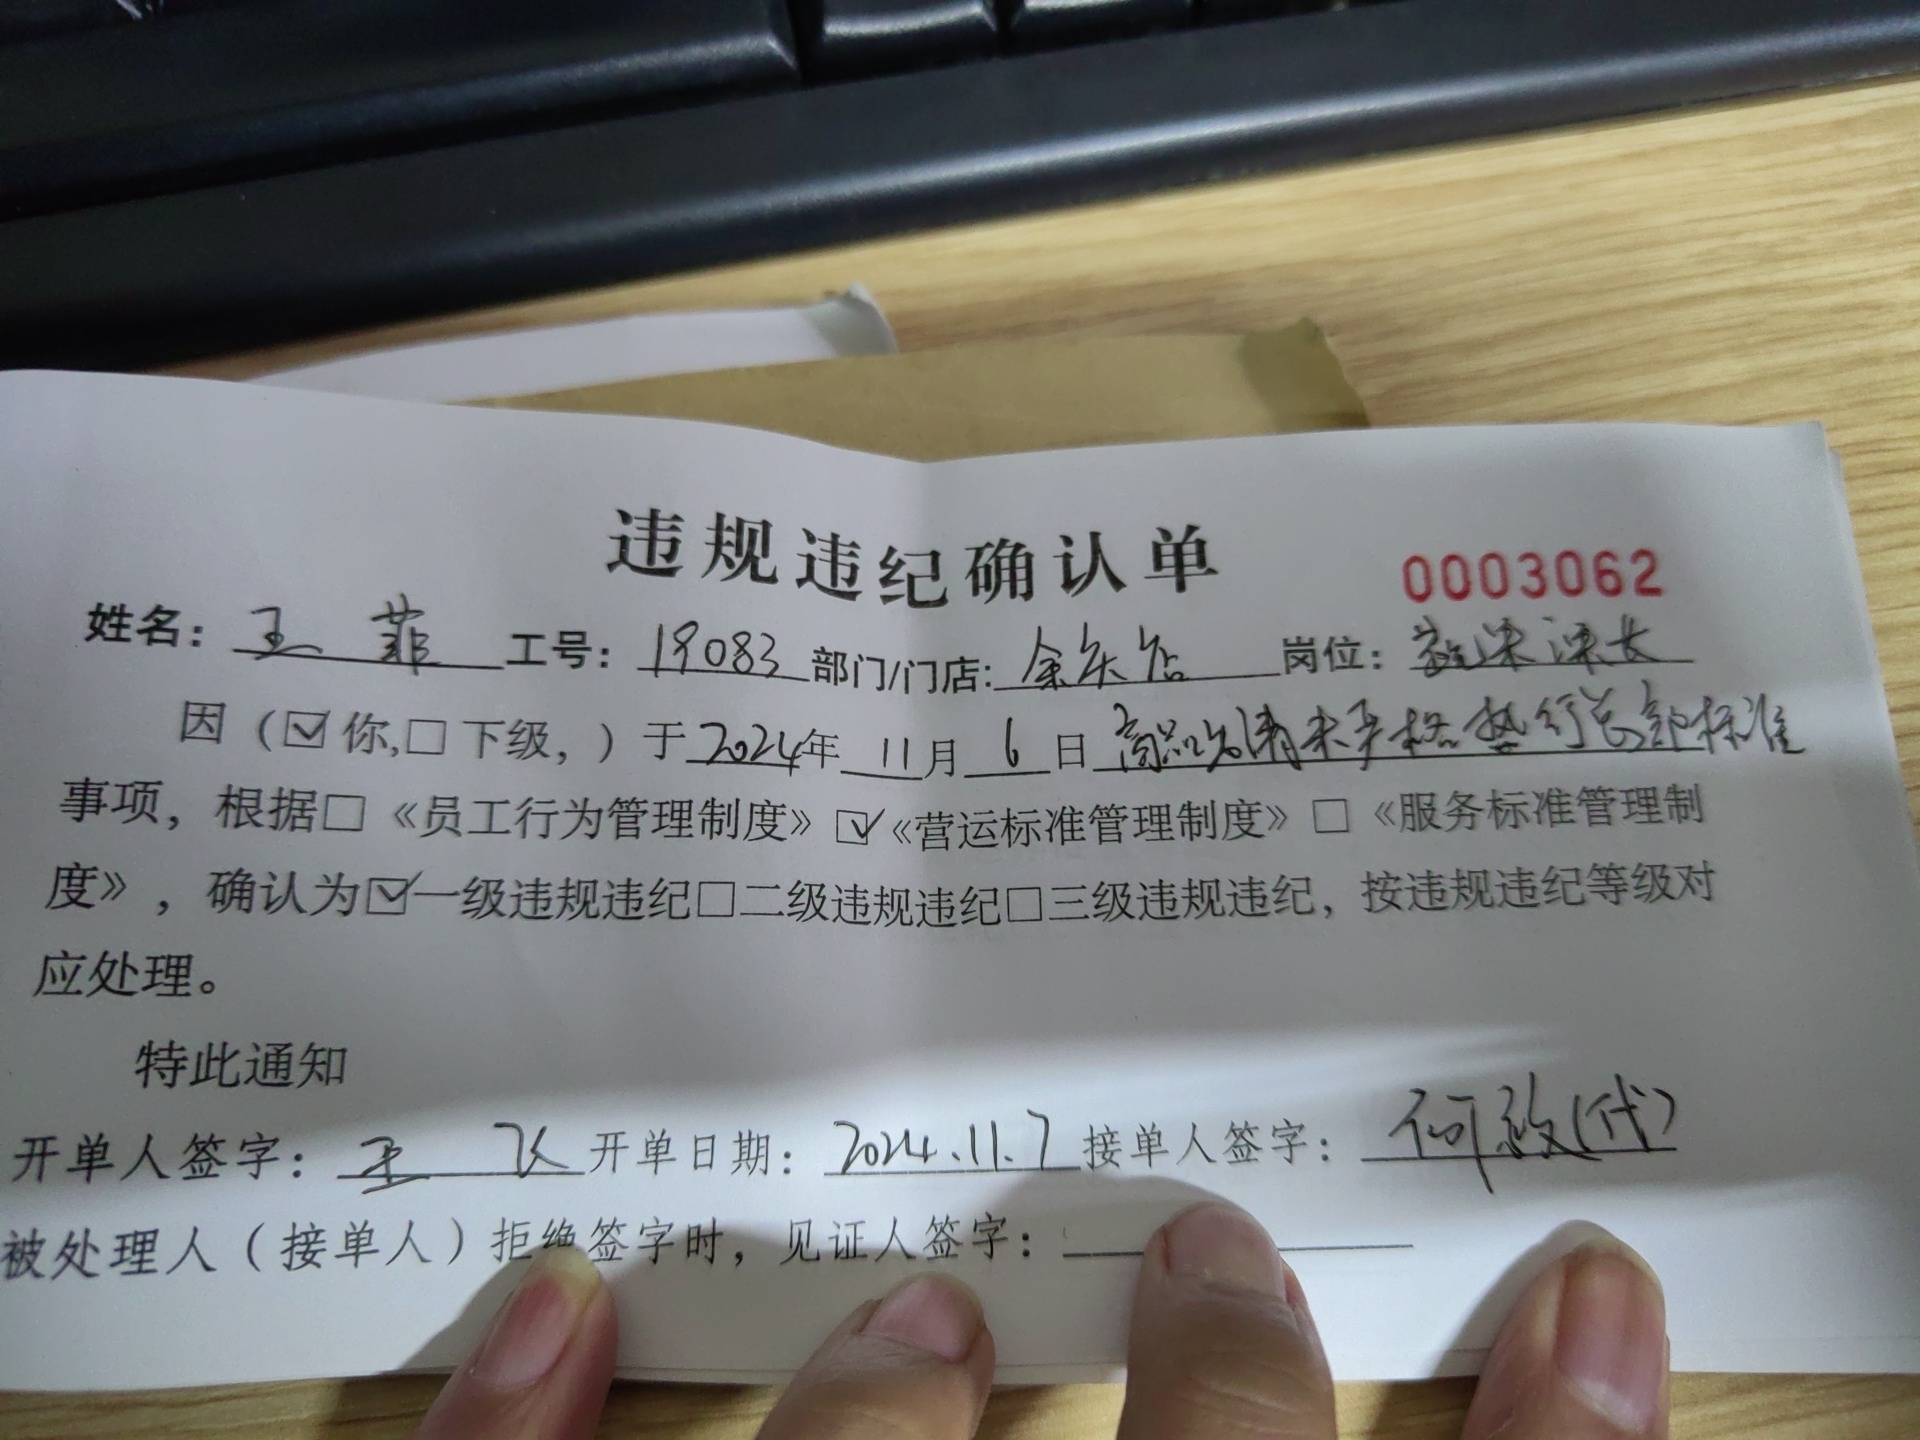 违规违纪确认单
0003062
姓名：王菲 工号：19083 部门/门店：余东店 岗位：课长
因（☑你,□下级，）于2024年11月6日商品 未严格执行总部标准
事项，根据□《员工行为管理制度》☑《营运标准管理制度》□《服务标准管理制
度》，确认为☑一级违规违纪□二级违规违纪□三级违规违纪，按违规违纪等级对
应处理。
特此通知
开单人签字：王飞 开单日期：2024.11.7 接单人签字：何敏(代)
被处理人（接单人）拒绝签字时，见证人签字：